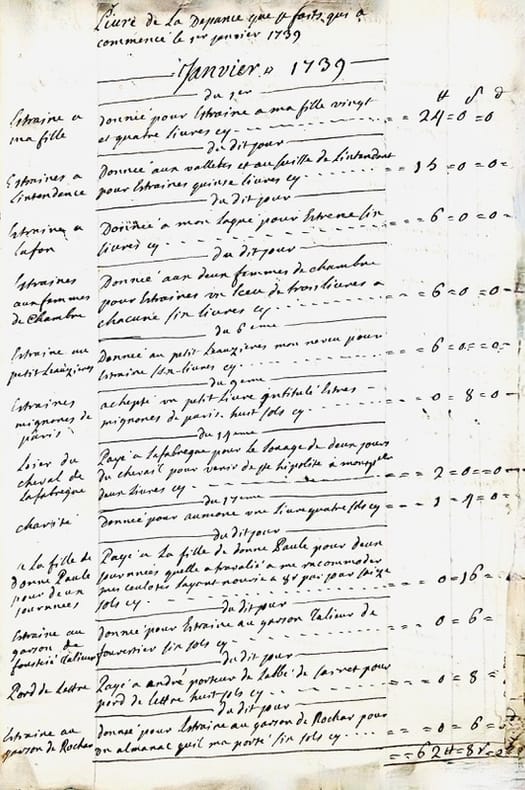 Livre de La Depance que je faits qui a
commencé le 1er janvier 1739
Janvier 1739
du 1er
Estraine a
ma fille
donnée pour Estraine a ma fille vingt
et quatre livres cy 24=0=0
du dit jour
Estraines a
Lintendance
Donnée aux vallets et au suisse de Lintendent
pour Estraines quinse livres cy 15=0=0
du dit jour
Estraine a
Lafon
Donnée a mon laqué pour Estrene sin
livres cy 6=0=0
du dit jour
Estraines
aux femmes
de Chambre
Donnée aux deux femmes de chambre
pour Estraines un Eceu de trois livres a
chacune sin livres cy 6=0=0
du 6eme
Estraine au
petit Leauzieres
Donnée au petit Leauzieres mon neveu pour
Estraine sin livres cy 6=0=0
du 9eme
Estraines
mignones de
paris
achepté un petit Livre intitulé Estres
mignones de paris huit sols cy 0=8=0
du 14eme
Loier du
cheval de
Lafabregue
Payé a Lafabregue pour le louage de deux jours
du chevail pour venir de st hipolite a montp
deux Livres cy 2=0=0
du 17eme
charité
Donnée pour aumone une livre quatre sols cy 1=4=0
du dit jour
a La fille de
Donne Paule
pour deux
journees
Payé a La fille de donne Paule pour deux
journées quelle a travalié a me racommoder
mes culotes layant nourie a 8s par jour saize
sols cy 0=16=
du dit jour
Estraine au
garson de
forestié Talieur
donnée pour Estraine au garson Talieur de
fourestier sin sols cy 0=6=
du dit jour
Pord de Lettre
Payé a andré porteur de Labbé de pour
pord de lettre huit sols cy 0=8=
du dit jour
Estraine au
garson de Rochar
donnée pour Estraine au garson de Rochar pour
un almanac quil ma porté sin sols cy 0=6=
62=8